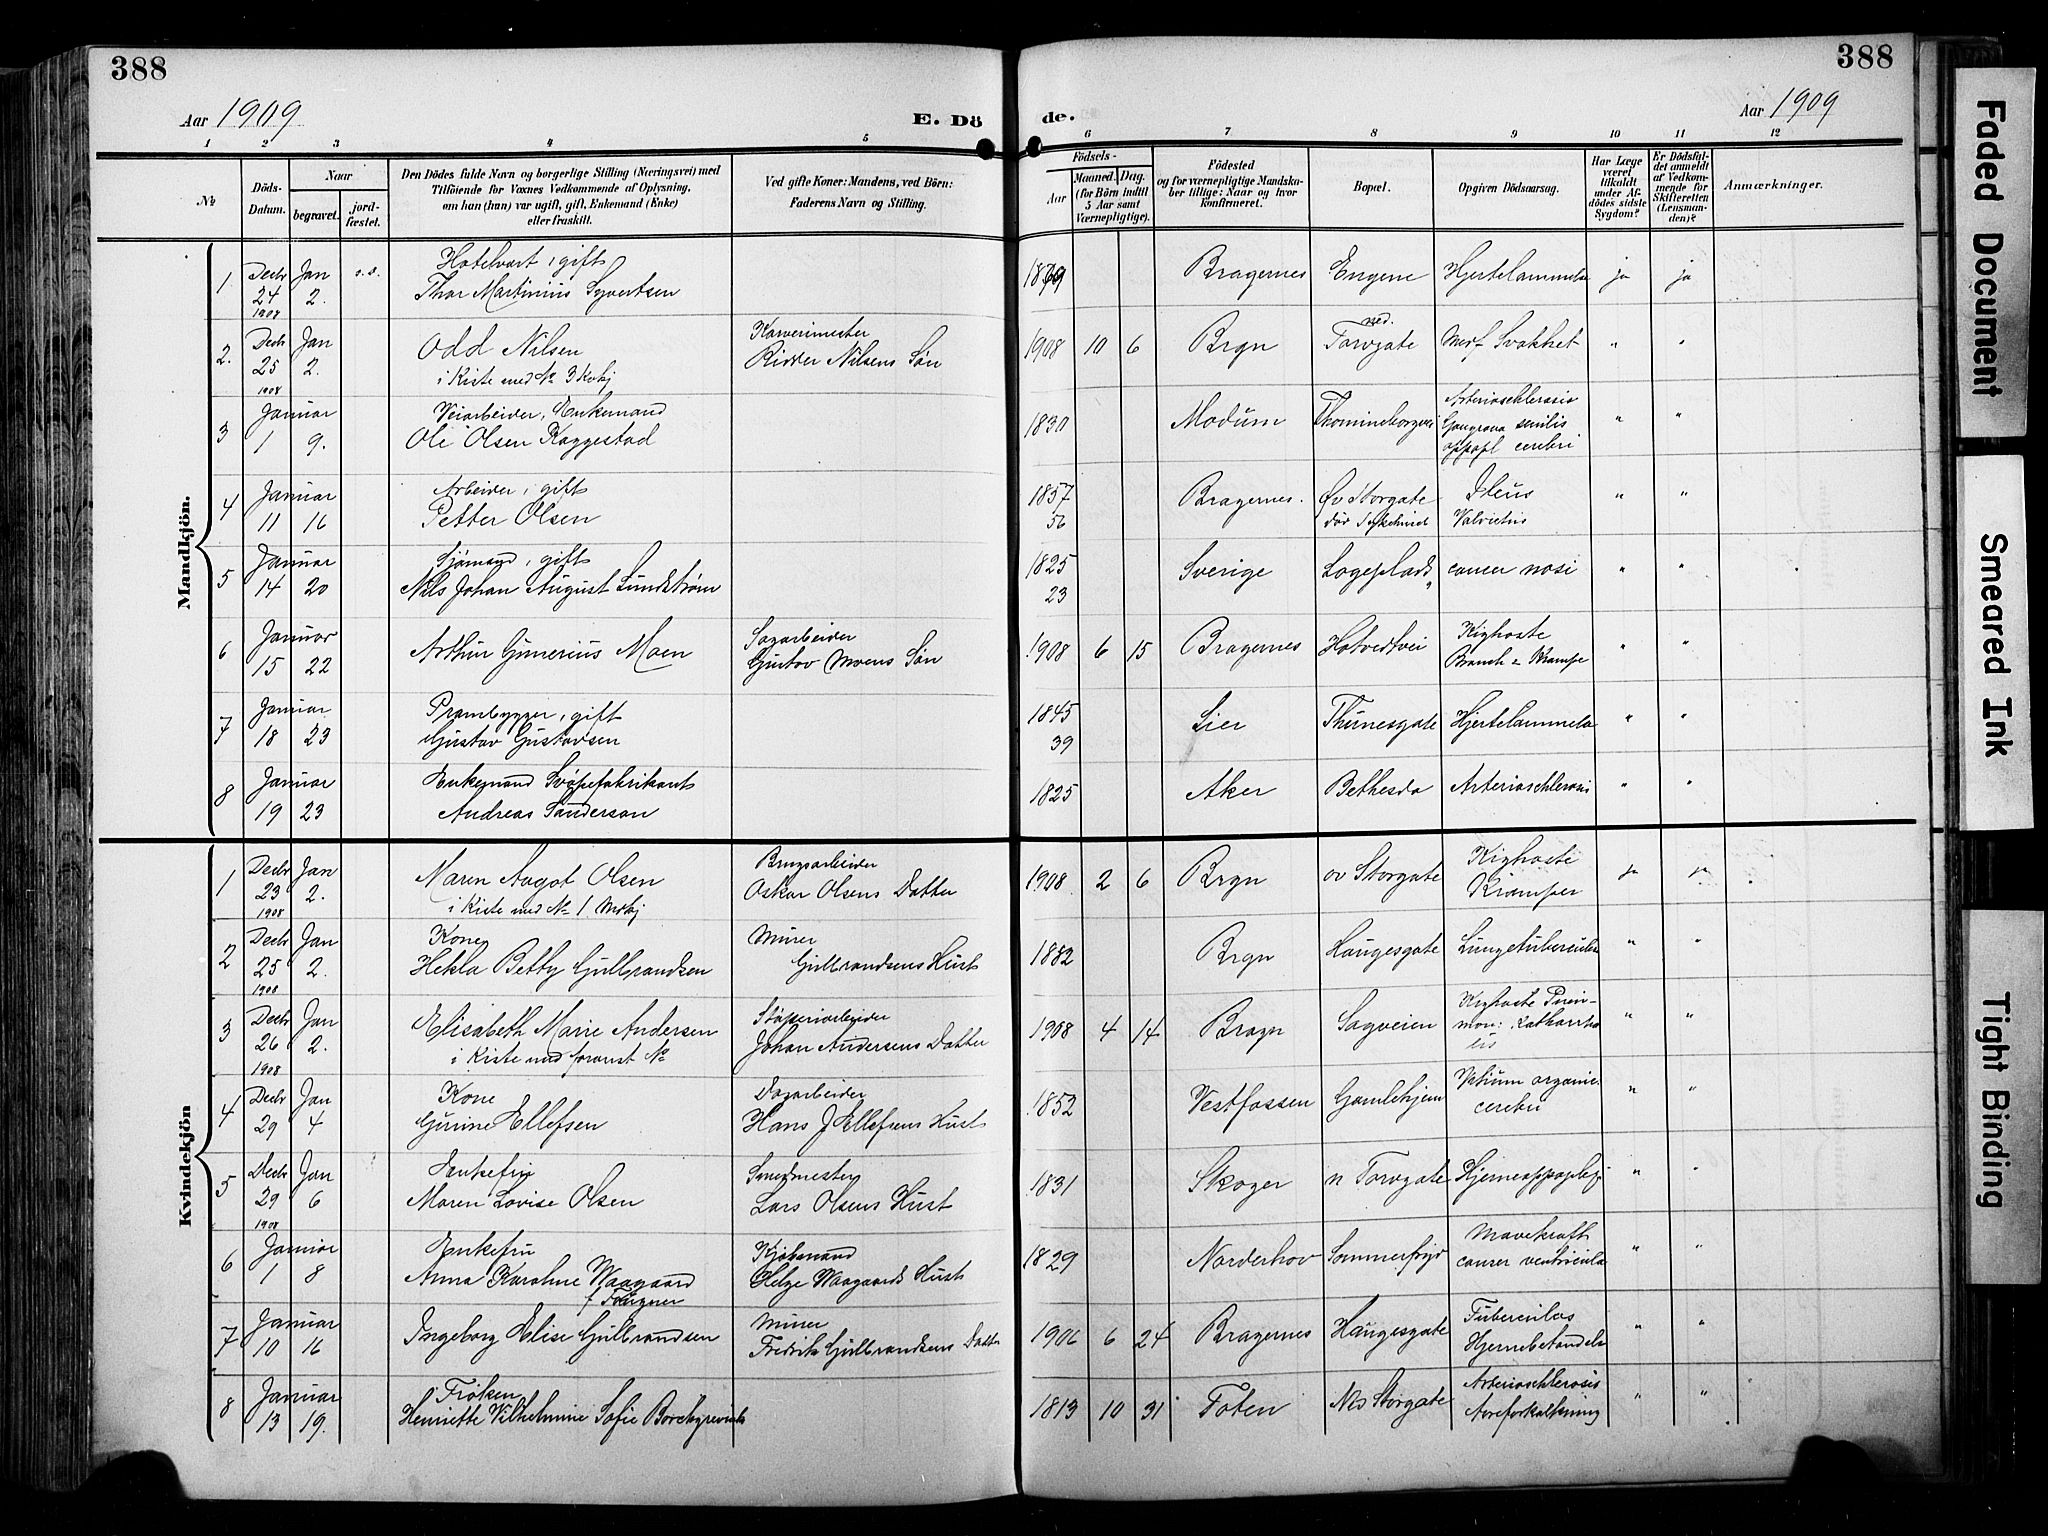 388
388
Aar 1909
E. Dö
de.
Aar 1909
1 2 3 4 5 6 7 8 9 10 11 12
№
Döds-Datum.
Naar
begravet.
jord-fæstet.
Den Dödes fulde Navn og borgerlige Stilling (Næringsvei) med
Tilföiende for Voxnes Vedkommende af Oplysning,
om han (hun) var ugift, gift, Enkemand (Enke)
eller fraskilt.
Ved gifte Koner: Mandens, ved Börn:
Faderens Navn og Stilling.
Födsels-
Aar
Maaned. Dag.
(for Börn indtil
5 Aar samt
Værnepligtige).
Födested
og for værnepligtige Mandska-
ber tillige: Naar og hvor
Konfirmeret.
Bopæl.
Opgiven Dödsaarsag.
Har Læge
været
tilkaldt
under Af-
dödes sidste
Sygdom?
Er Dödsfal-
det anmeldt
af Vedkom-
mende for
Skifteretten
(Lensman-
den)?
Anmærkninger.
Mandkjön.
1 Decbr 24 1908 Jan 2. s.d. Hotelvært, gift
Thor Martinius Syvertsen Bragernes Engene Hjertelammelse ja ja
2. Decbr 25 1908 Jan 2. Odd Nilsen
i Kiste med № 3 Kvkj Ridder Nilsens Søn 1908 10 6 Brgn ned. Torvgate Medf Svakhet " "
3 Januar 1 9. Veiarbeider, Enkemand
Ole Olsen Kaggestad 1830 Modum Thomineborgvei Arteriosclerosis
Gangrena senilis
appopl cerebri " "
4 Januar 11 16 Arbeider, gift
Petter Olsen 1857
56 Bragernes. Øv Storgate
død Sykehuset Ileus
" "
5 Januar 14 20 Sjømand, gift
Nils Johan August Lundstrøm 1825
23 Sverige Logeplads cancer nasi " "
6 Januar 15 22 Arthur Gunerius Moen Sagarbeider
Gustav Moens Søn 1908 6 15 Bragernes Hotvedtvei Kighoste
Bronch & Krampe " "
7 Januar 18 23 Prambygger, gift
Gustav Gustavsen 1845
39 Lier Thunesgate Hjertelammelse " "
8 Januar 19 23 Enkemand Svøpefabrikant
Andreas Sanderson 1825 Aker Bethesda Arteriosclerosis " "
Kvindekjön
1 Decbr 23 1908 Jan 2. Maren Aagot Olsen
i Kiste med № 1 Mdkj Brugsarbeider
Oskar Olsens Datter 1908 2 6 Brgn øv Storgate Kighoste
Kramper ja ja
2 Decbr 25 1908 Jan 2. Kone
Hekla Betty Gulbrandsen Murer
Gulbrandsens Hust 1882 Brgn Haugesgate Lungetuberculose " "
3 Decbr 26 1908 Jan 2. Elisabeth Marie Andersen
i Kiste med foranst № Støperiarbeider
Johan Andersens Datter 1908 4 14 Bragn Sagveien Kighoste Pneu-
mon: Katharrha
lis " "
4 Decbr 29 Jan 4 Kone
Gurine Ellefsen Dagarbeider
Hans J Ellefsens Hust 1852 Vestfossen Gamlehjem Vitium organic.
cerebri " "
5 Decbr 29 1908 Jan 6 Enkefru
Maren Lovise Olsen Smedmester
Lars Olsens Hust 1831 Skoger n Torvgate Hjerneappoplexi " "
6 Januar 1 8 Enkefru
Anna Karoline Waagaard
f Fougner Kjøbmand
Helge Waagaards Hust 1829 Norderhov Sommerfryd Mavekræft
cancer ventriculi " "
7 Januar 10 16 Ingeborg Elise Gulbrandsen Murer
Fredrik Gulbrandsens Datter 1906 6 24 Bragernes Haugesgate Tuberculos
Hjernebetændelse " "
8 Januar 13 19. Frøken
Henriette Vilhelmine Sofie Borchgrevink 1813 10 31 Toten Nes Storgate Arteriosclerosis
Aareforkalkning " "
Faded Document
Smeared Ink
Tight Binding